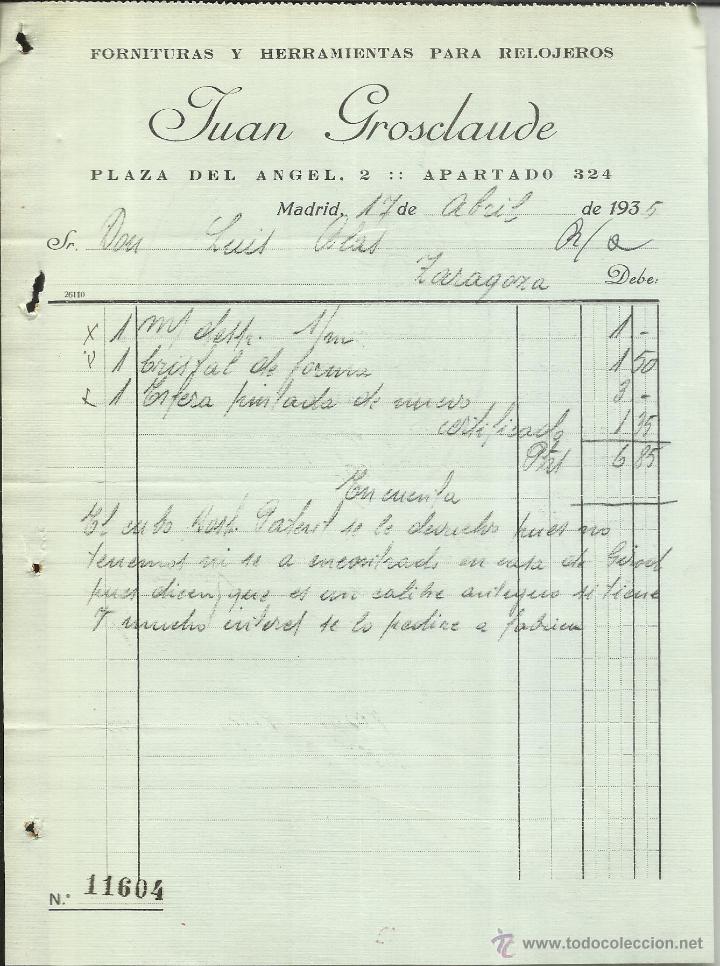 FORNITURAS Y HERRAMIENTAS PARA RELOJEROS
Juan Grosclaude
PLAZA DEL ANGEL, 2 :: APARTADO 324
Madrid, 17 de Abril de 1935
Sr. Don Luis Blas
Zaragoza Debe:
26110
1 1/m 1 -
1 Cristal de forma 1 50
1 Esfera pintada de nuevo 3 -
certificado 1 35
Pts 6 85
En cuenta
El cubo se le devuelve pues no
tenemos ni se a encontrado en casa de Girod
pues dicen que es un calibre antiguo si tiene
V mucho interes se lo pedire a fabrica
N.° 11604
www.todocoleccion.net